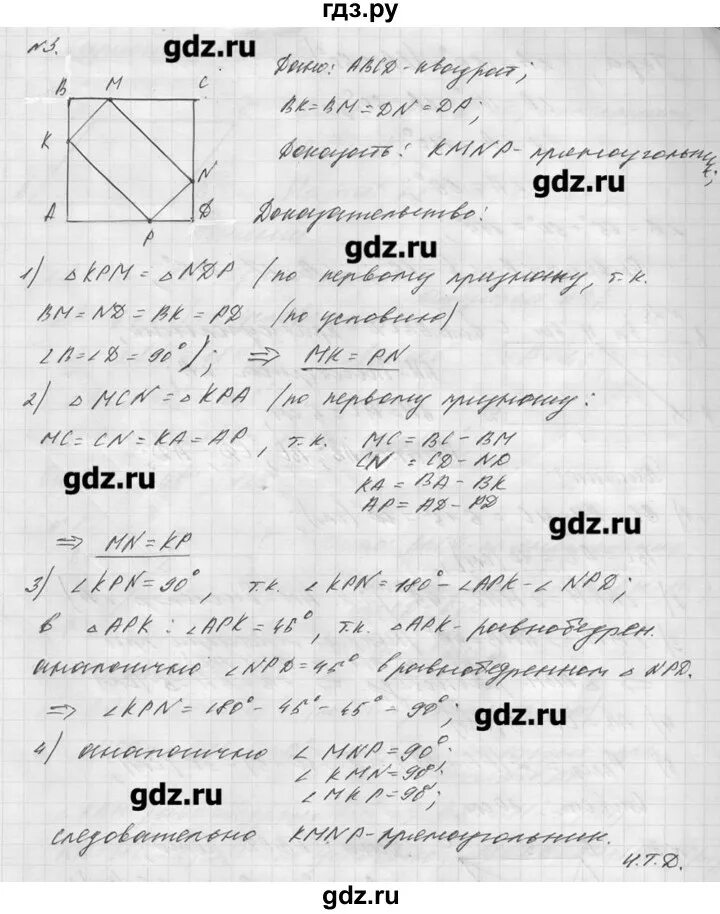 гдз.ру
№3.
gdz.ru
Дано: ABCD-квадрат;
B M C
K N
A P D
BK=BM=DN=DP;
Доказать: KMNP-прямоугольник;
gdz.ru
Доказательство:
gdz.ru
1) △KPM = △NDP (по первому признаку, т.к.
BM=ND=BK=PD (по условию)
∠B=∠D=90°); ⇒ MK=PN
2) △MCN = △KPA (по первому признаку:
MC=CN=KA=AP, т.к. MC=BC-BM
CN=CD-ND
KA=BA-BK
AP=AD-PD
gdz.ru
gdz.ru
⇒ MN=KP
3) ∠KPN=90°, т.к. ∠KPN=180°-∠APK-∠NPD;
в △APK: ∠APK=45°, т.к. △APK-равнобедрен.
аналогично ∠NPD=45° в равнобедренном △NPD.
⇒ ∠KPN=180°-45°-45°=90°;
gdz.ru
4) аналогично ∠MNP=90°;
∠KMN=90°;
∠MKP=90°;
gdz.ru
следовательно KMNP-прямоугольник.
ч.т.д.
gdz.ru